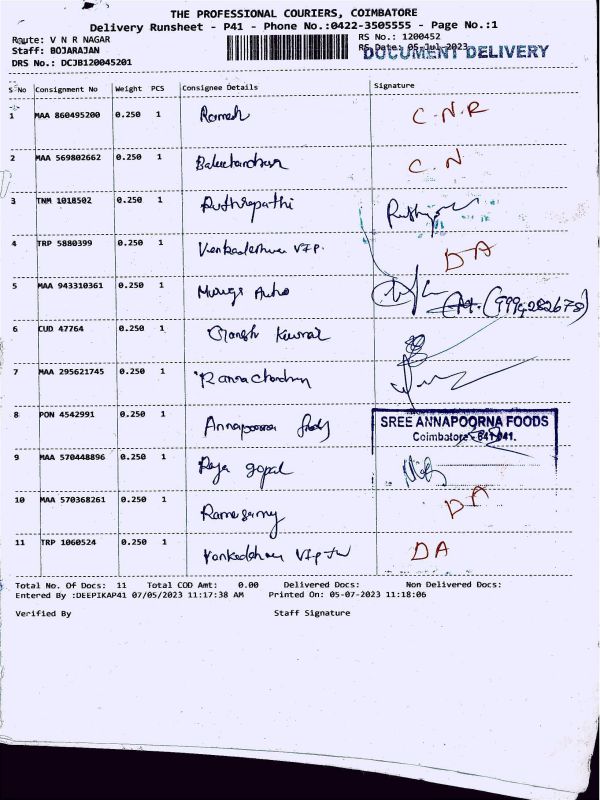 THE PROFESSIONAL COURIERS, COIMBATORE
Delivery Runsheet - P41 - Phone No.:0422-3505555 - Page No.:1
Route: V N R NAGAR
RS No.: 1200452
Staff: BOJARAJAN
RS Date: 05-Jul-2023
DOCUMENT DELIVERY
DRS No.: DCJB120045201
S No Consignment No Weight PCS Consignee Details Signature
1 MAA 860495200 0.250 1 Ramesh C.N.R
2 MAA 569802662 0.250 1 C.N
3 TNM 1018502 0.250 1 Ruthrapathi
4 TRP 5880399 0.250 1 VIP. DA
5 MAA 943310361 0.250 1 Auto (9994282678)
6 CUD 47764 0.250 1 Ganesh Kumar
7 MAA 295621745 0.250 1 Ramachandran
8 PON 4542991 0.250 1 Annapoorna foods SREE ANNAPOORNA FOODS
Coimbatore - 641 041.
9 MAA 570448896 0.250 1 Raja gopal
10 MAA 570368261 0.250 1 Ramasamy DA
11 TRP 1060524 0.250 1 VIP DA
Total No. Of Docs: 11 Total COD Amt: 0.00 Delivered Docs: Non Delivered Docs:
Entered By :DEEPIKAP41 07/05/2023 11:17:38 AM Printed On: 05-07-2023 11:18:06
Verified By Staff Signature